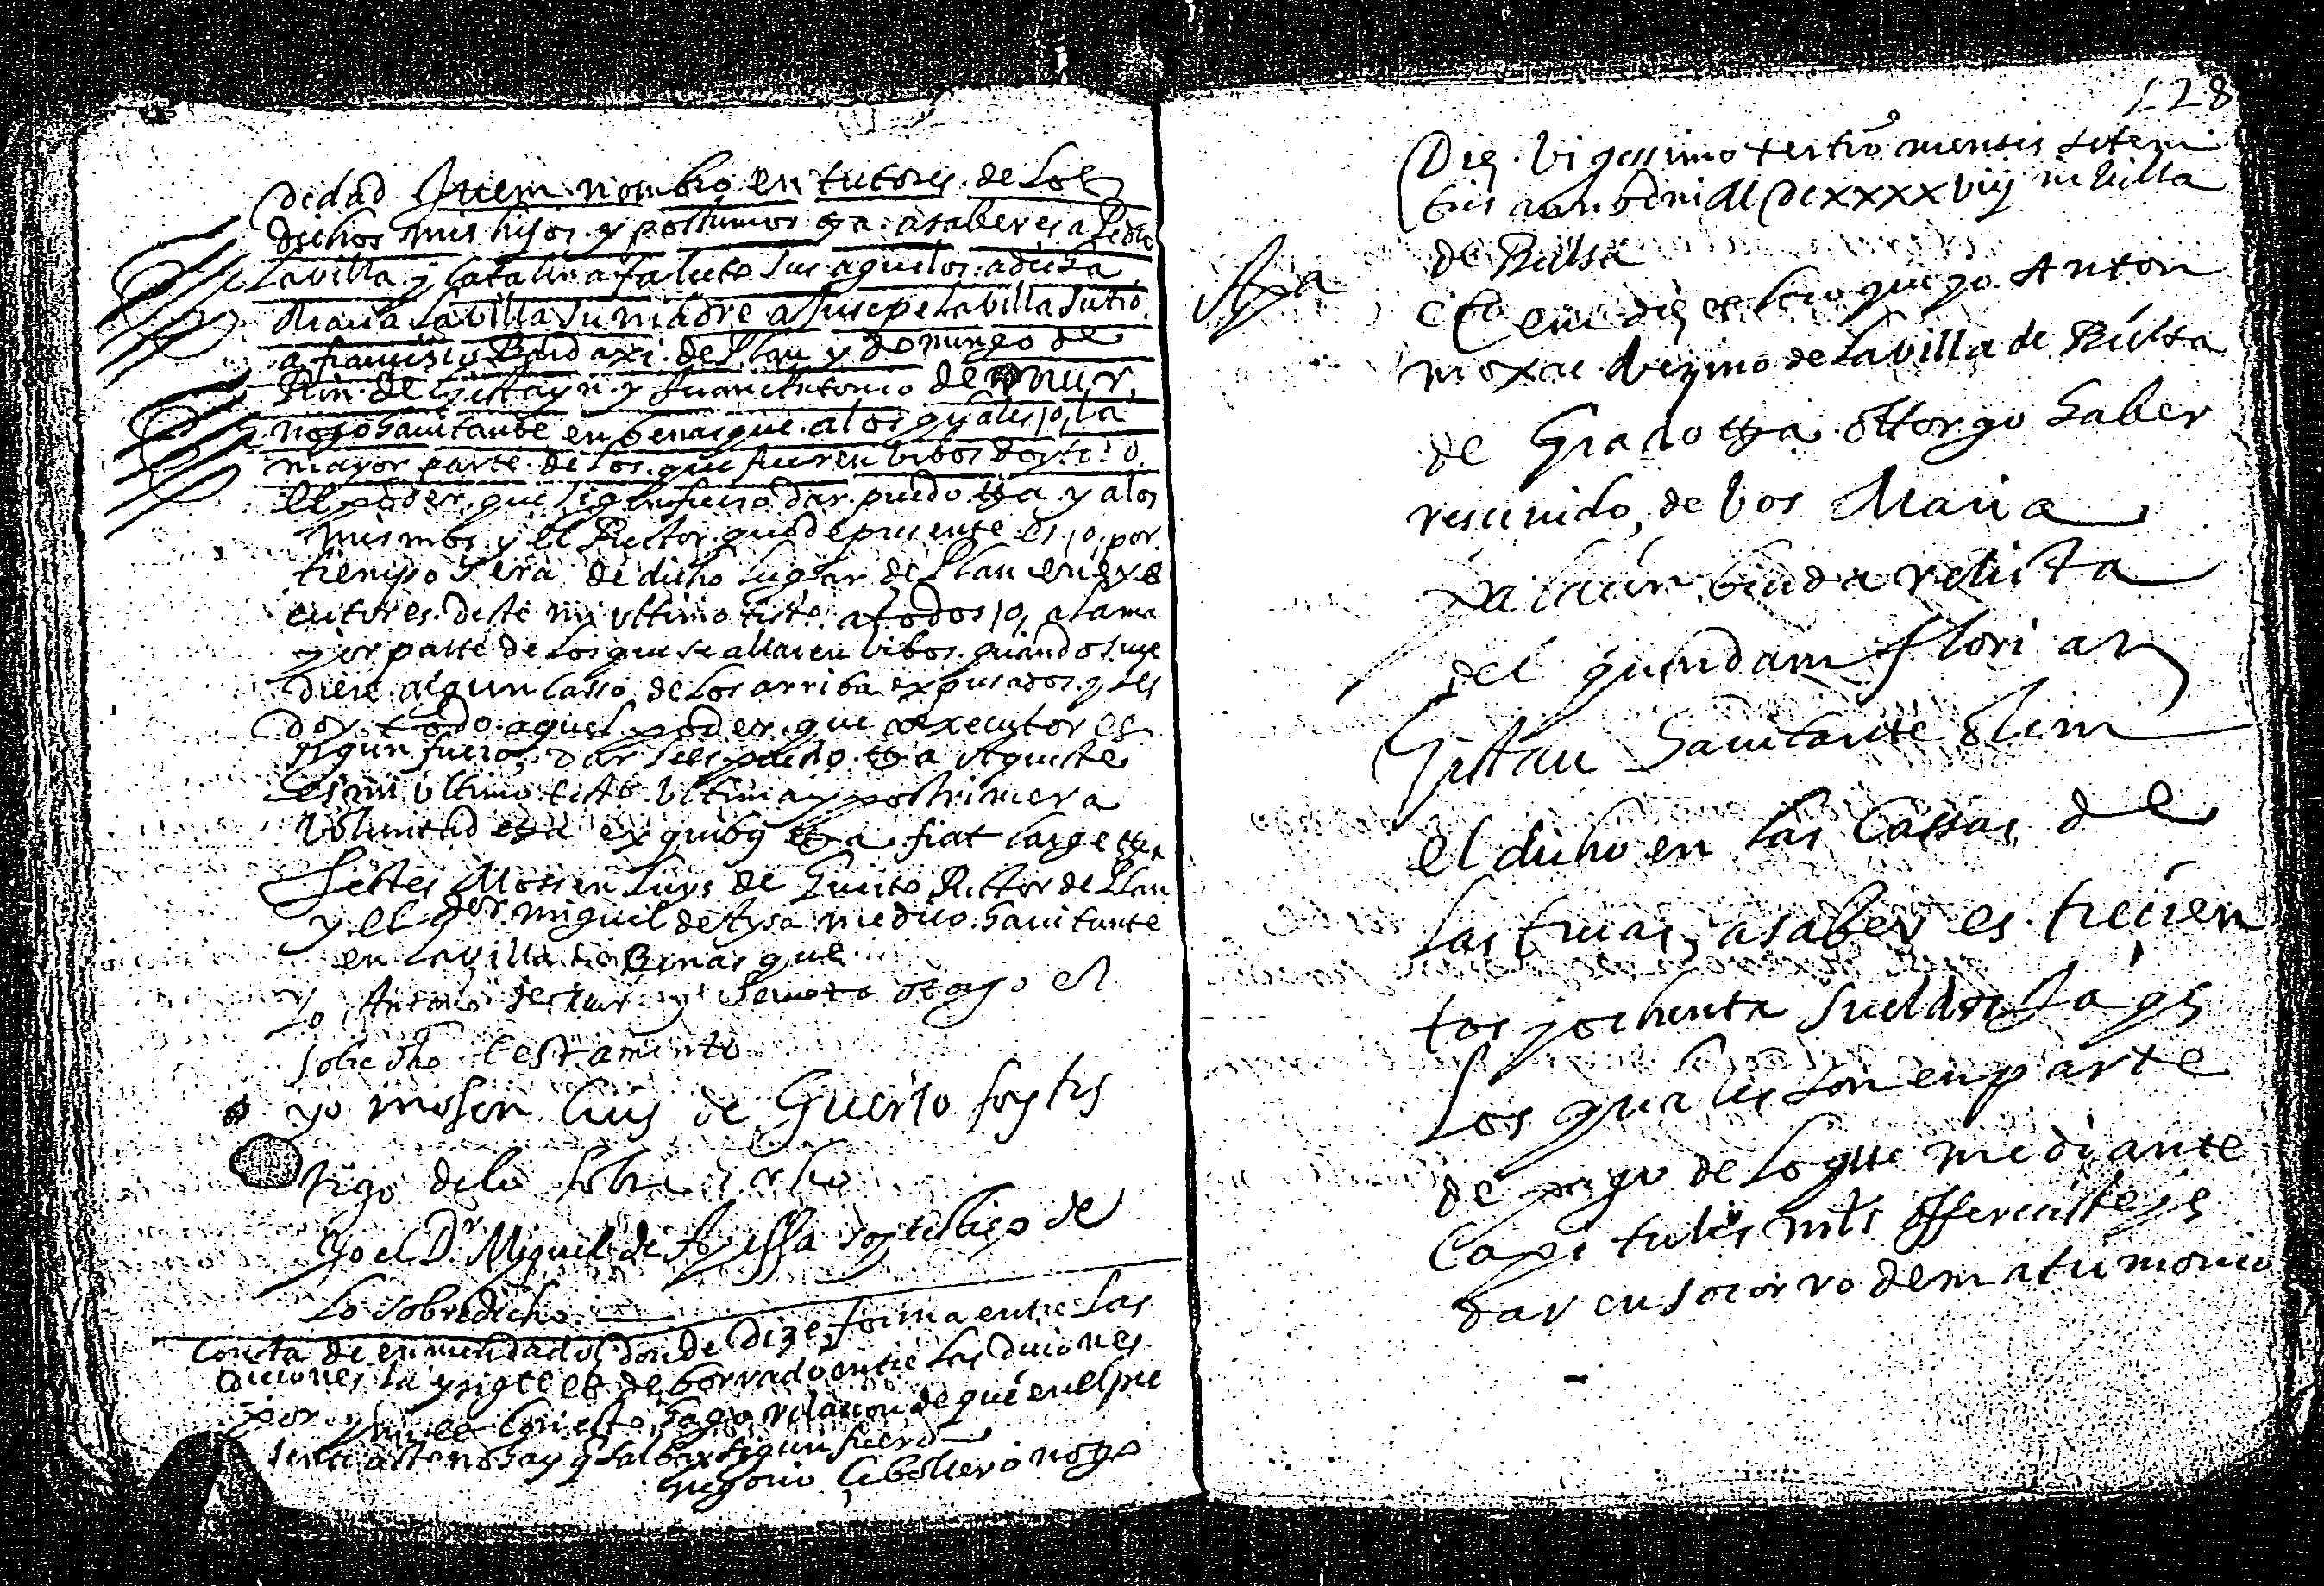 dedad Ittem nombro en tutores de los
dichos mis hijos y postumos etza a saber es a Pedro
Lavilla y Catalina Falceto sus aguelos a dicha
Maria Lavilla su madre a Jusepe Lavilla su tio
a francisco Bardaxi de Plan y domingo de
Plin de Gistayn y Juan Antonio de Mur
noto havitante en benasque a los quales, o, la
mayor parte de los que fueren bibos doy todo
el poder que sigun fuero dar puedo etza y a los
mismos y el Retor que de presente es, o, por
tiempo sera de dicho lugar de Plan en exe
cutores deste mi ultimo testo a todos, o, a la ma
yor parte de los que se allaren bibos quando suce
diere algun casso de los arriba expresados y les
doy todo aquel poder que a executores
sigun fuero, dar seles puedo etza Aqueste
es mi ultimo testo ultima y postrimera
voluntad etza ex quibus etza fiat large etza
Testes Mossen Luys de Guerto Rector de Plan
y el Dor Miguel de Aysa medico havitante
en la villa de Benasque
Yo Antonio de Mur y otorgo el
sobre dho testamento
yo mosen luis de Guerto soy tes
tigo de lo sobre dicho
Yo el Dr Miguel de Ayssa soy testigo de
Lo sobredicho
Consta de enmendado donde dize forma entre las
diciones la y sigte et de borrado entre las diciones
por y mi et con esto hago relacion de que en el pre
sente acto no hay q salbar sigun fuero
Gregorio Ceboller noto
128
Die vigessimo tertio mensis setem
bris anni Dni M DCxxxxviij in villa
de Bielsa
Apa
Eadem die et loco que yo Anton
moxau vezino de la villa de Bielsa
de Grado etza ottorgo haber
rescivido, de bos Maria
palacin biuda relicta
del quondam florian
Gistau havitante olim
el dicho en las Cassas de
las cuias, a saber es trecien
tos y ochenta sueldos Jaqs
Los quales son en parte
de pago de lo que mediante
Capitules mls offrecisteys
dar en socorro de matrimonio